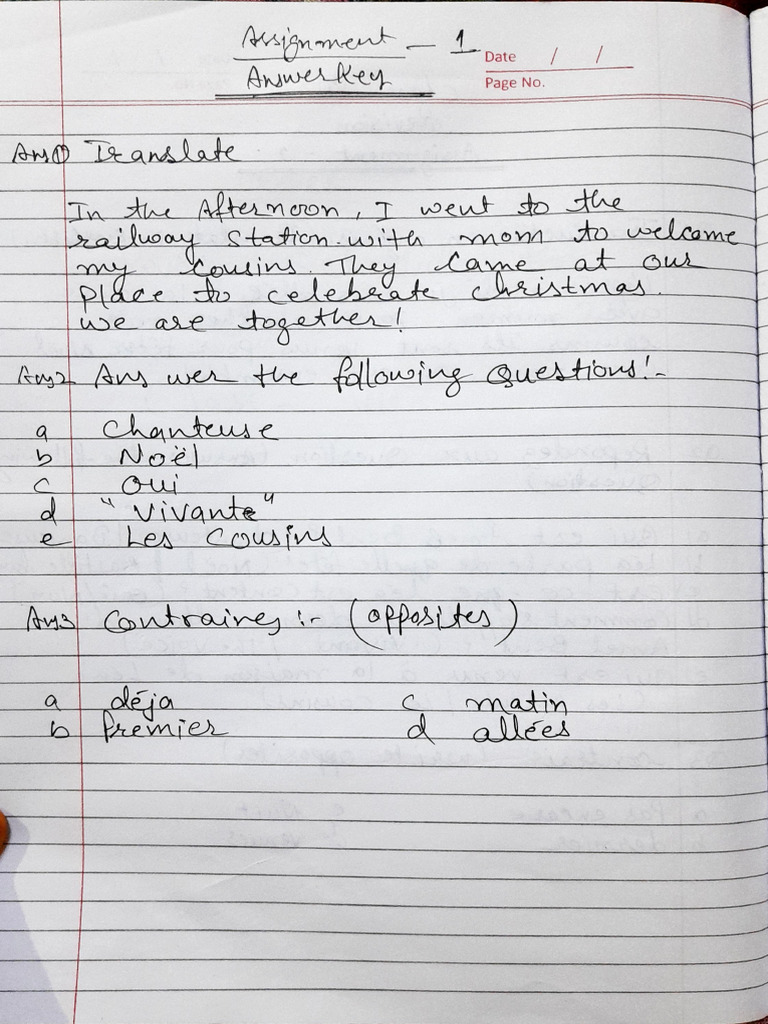 Assignment - 1
Answer Key
Date / /
Page No.
Ans① Translate
In the Afternoon, I went to the
railway station with mom to welcome
my cousins. They came at our
place to celebrate christmas.
we are together!
Ans2 Answer the following Questions!-
a Chanteuse
b Noël
c Oui
d "Vivante"
e Les Cousins
Ans3 Contraires :- (opposites)
a déja c matin
b Premier d allées